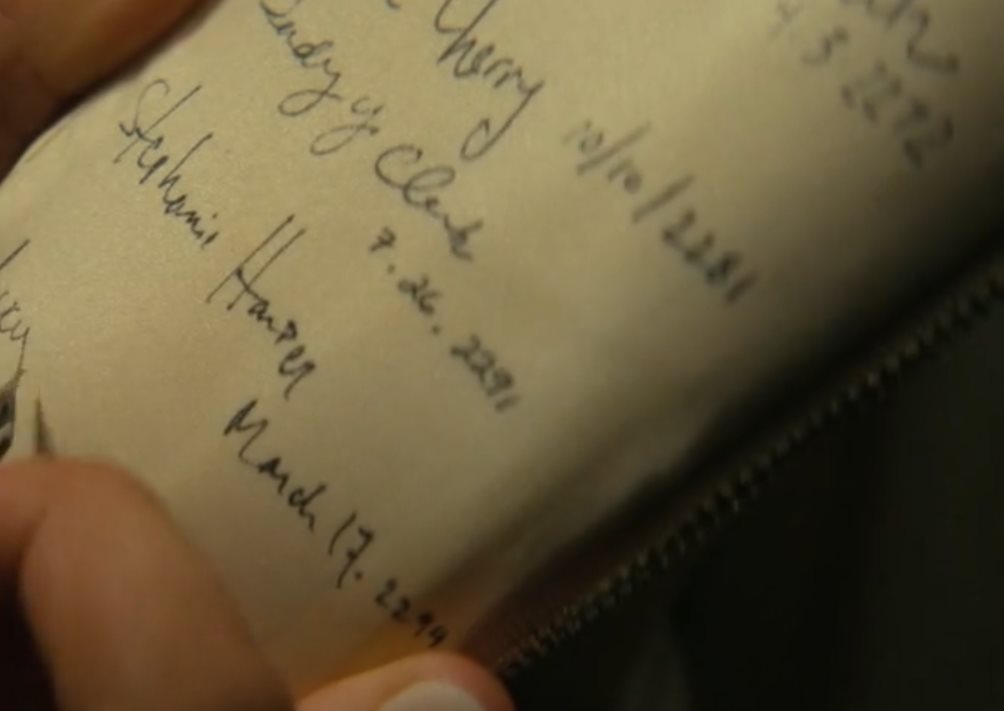 4 3 2272
Cherry
10/10/2281
Sandy y. Clark
7.26.2291
Stephanie Harper
March 17. 2294